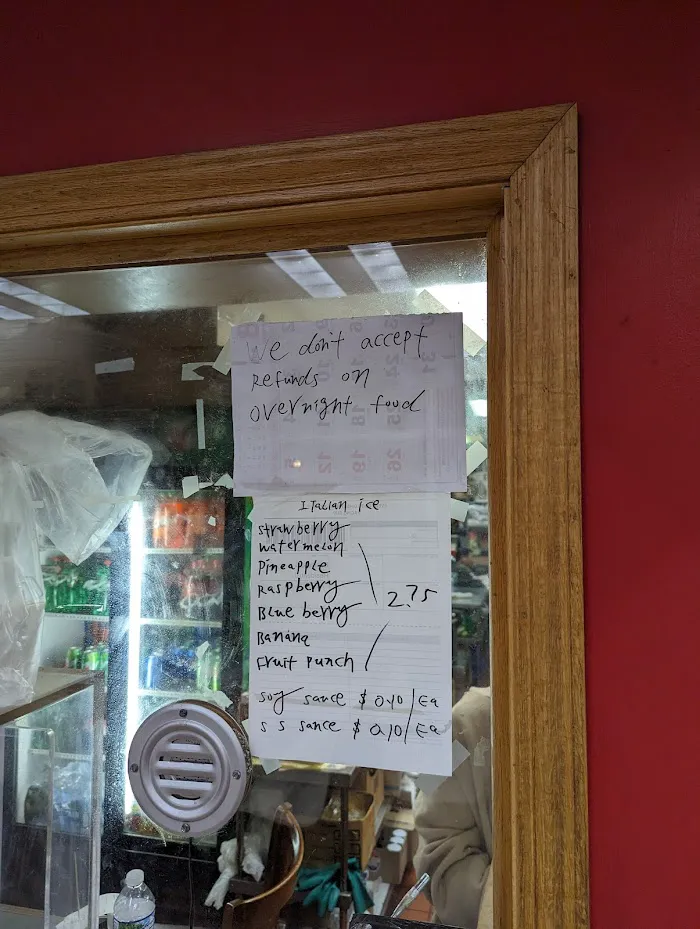 We don't accept
Refunds on
overnight food
Italian ice
strawberry
watermelon
Pineapple
Raspberry
Blue berry
2.75
Banana
Fruit Punch
soy sauce $0.10/Ea
s s sauce $0.10/Ea